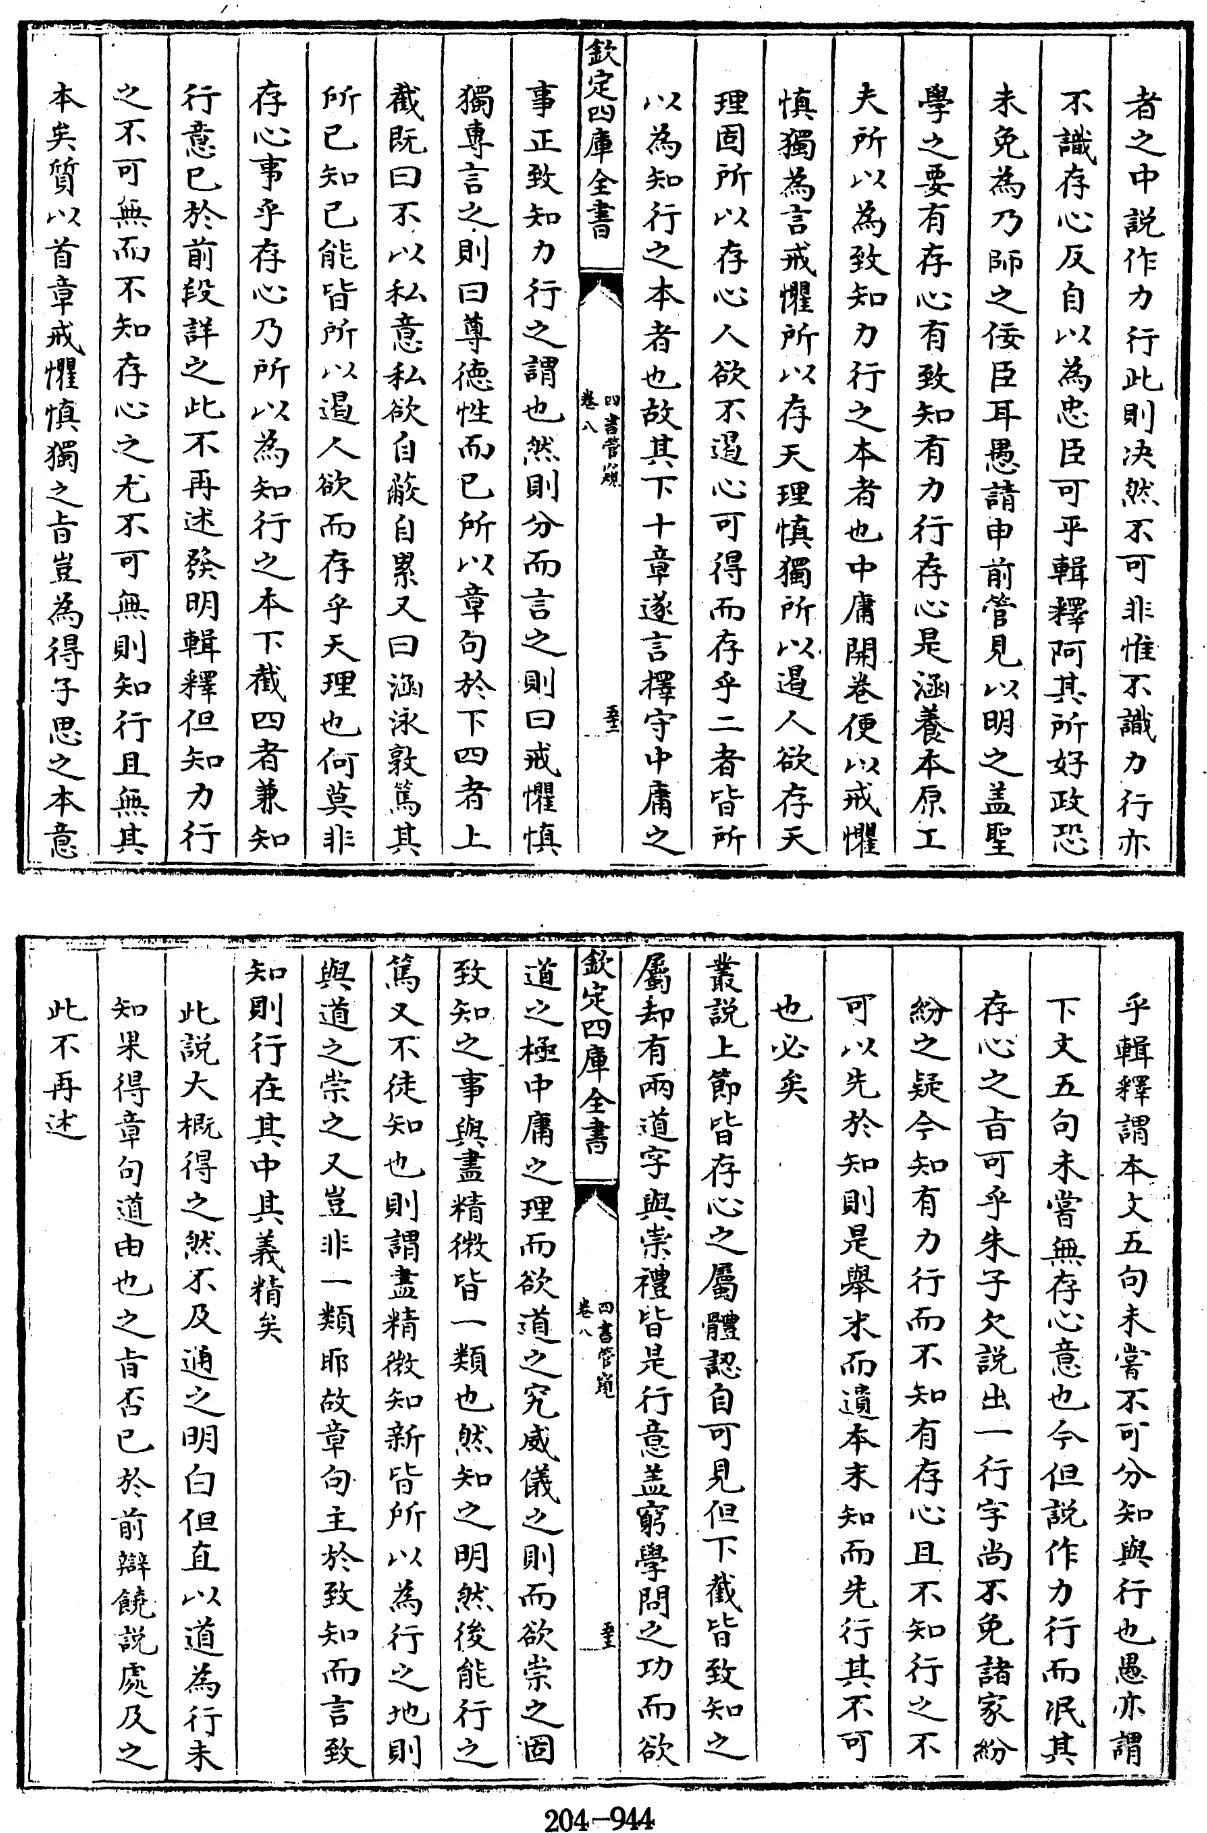 者之中説作力行此則决然不可非惟不識力行亦
不識存心反自以為忠臣可乎輯釋阿其所好政恐
未免為乃師之佞臣耳愚請申前管見以明之盖聖
學之要有存心有致知有力行存心是涵養本原工
夫所以為致知力行之本者也中庸開卷便以戒懼
慎獨為言戒懼所以存天理慎獨所以遏人欲存天
理固所以存心人欲不遏心可得而存乎二者皆所
以為知行之本者也故其下十章遂言擇守中庸之
欽定四庫全書
四書管窺
卷八
事正致知力行之謂也然則分而言之則曰戒懼慎
獨專言之則曰尊德性而已所以章句於下四者上
截既曰不以私意私欲自蔽自累又曰涵泳敦篤其
所已知已能皆所以遏人欲而存乎天理也何莫非
存心事乎存心乃所以為知行之本下截四者兼知
行意已於前段詳之此不再述發明輯釋但知力行
之不可無而不知存心之尤不可無則知行且無其
本矣質以首章戒懼慎獨之旨豈為得子思之本意
乎輯釋謂本文五句未嘗不可分知與行也愚亦謂
下文五句未嘗無存心意也今但説作力行而泯其
存心之旨可乎朱子欠説出一行字尚不免諸家紛
紛之疑今知有力行而不知有存心且不知行之不
可以先於知則是舉末而遺本未知而先行其不可
也必矣
叢説上節皆存心之屬體認自可見但下截皆致知之
屬却有兩道字與崇禮皆是行意盖窮學問之功而欲
欽定四庫全書
四書管窺
卷八
道之極中庸之理而欲道之究威儀之則而欲崇之固
致知之事與盡精微皆一類也然知之明然後能行之
篤又不徒知也則謂盡精微知新皆所以為行之地則
與道之崇之又豈非一類耶故章句主於致知而言致
知則行在其中其義精矣
此説大概得之然不及通之明白但直以道為行未
知果得章句道由也之旨否已於前辯饒説處及之
此不再述
204-944